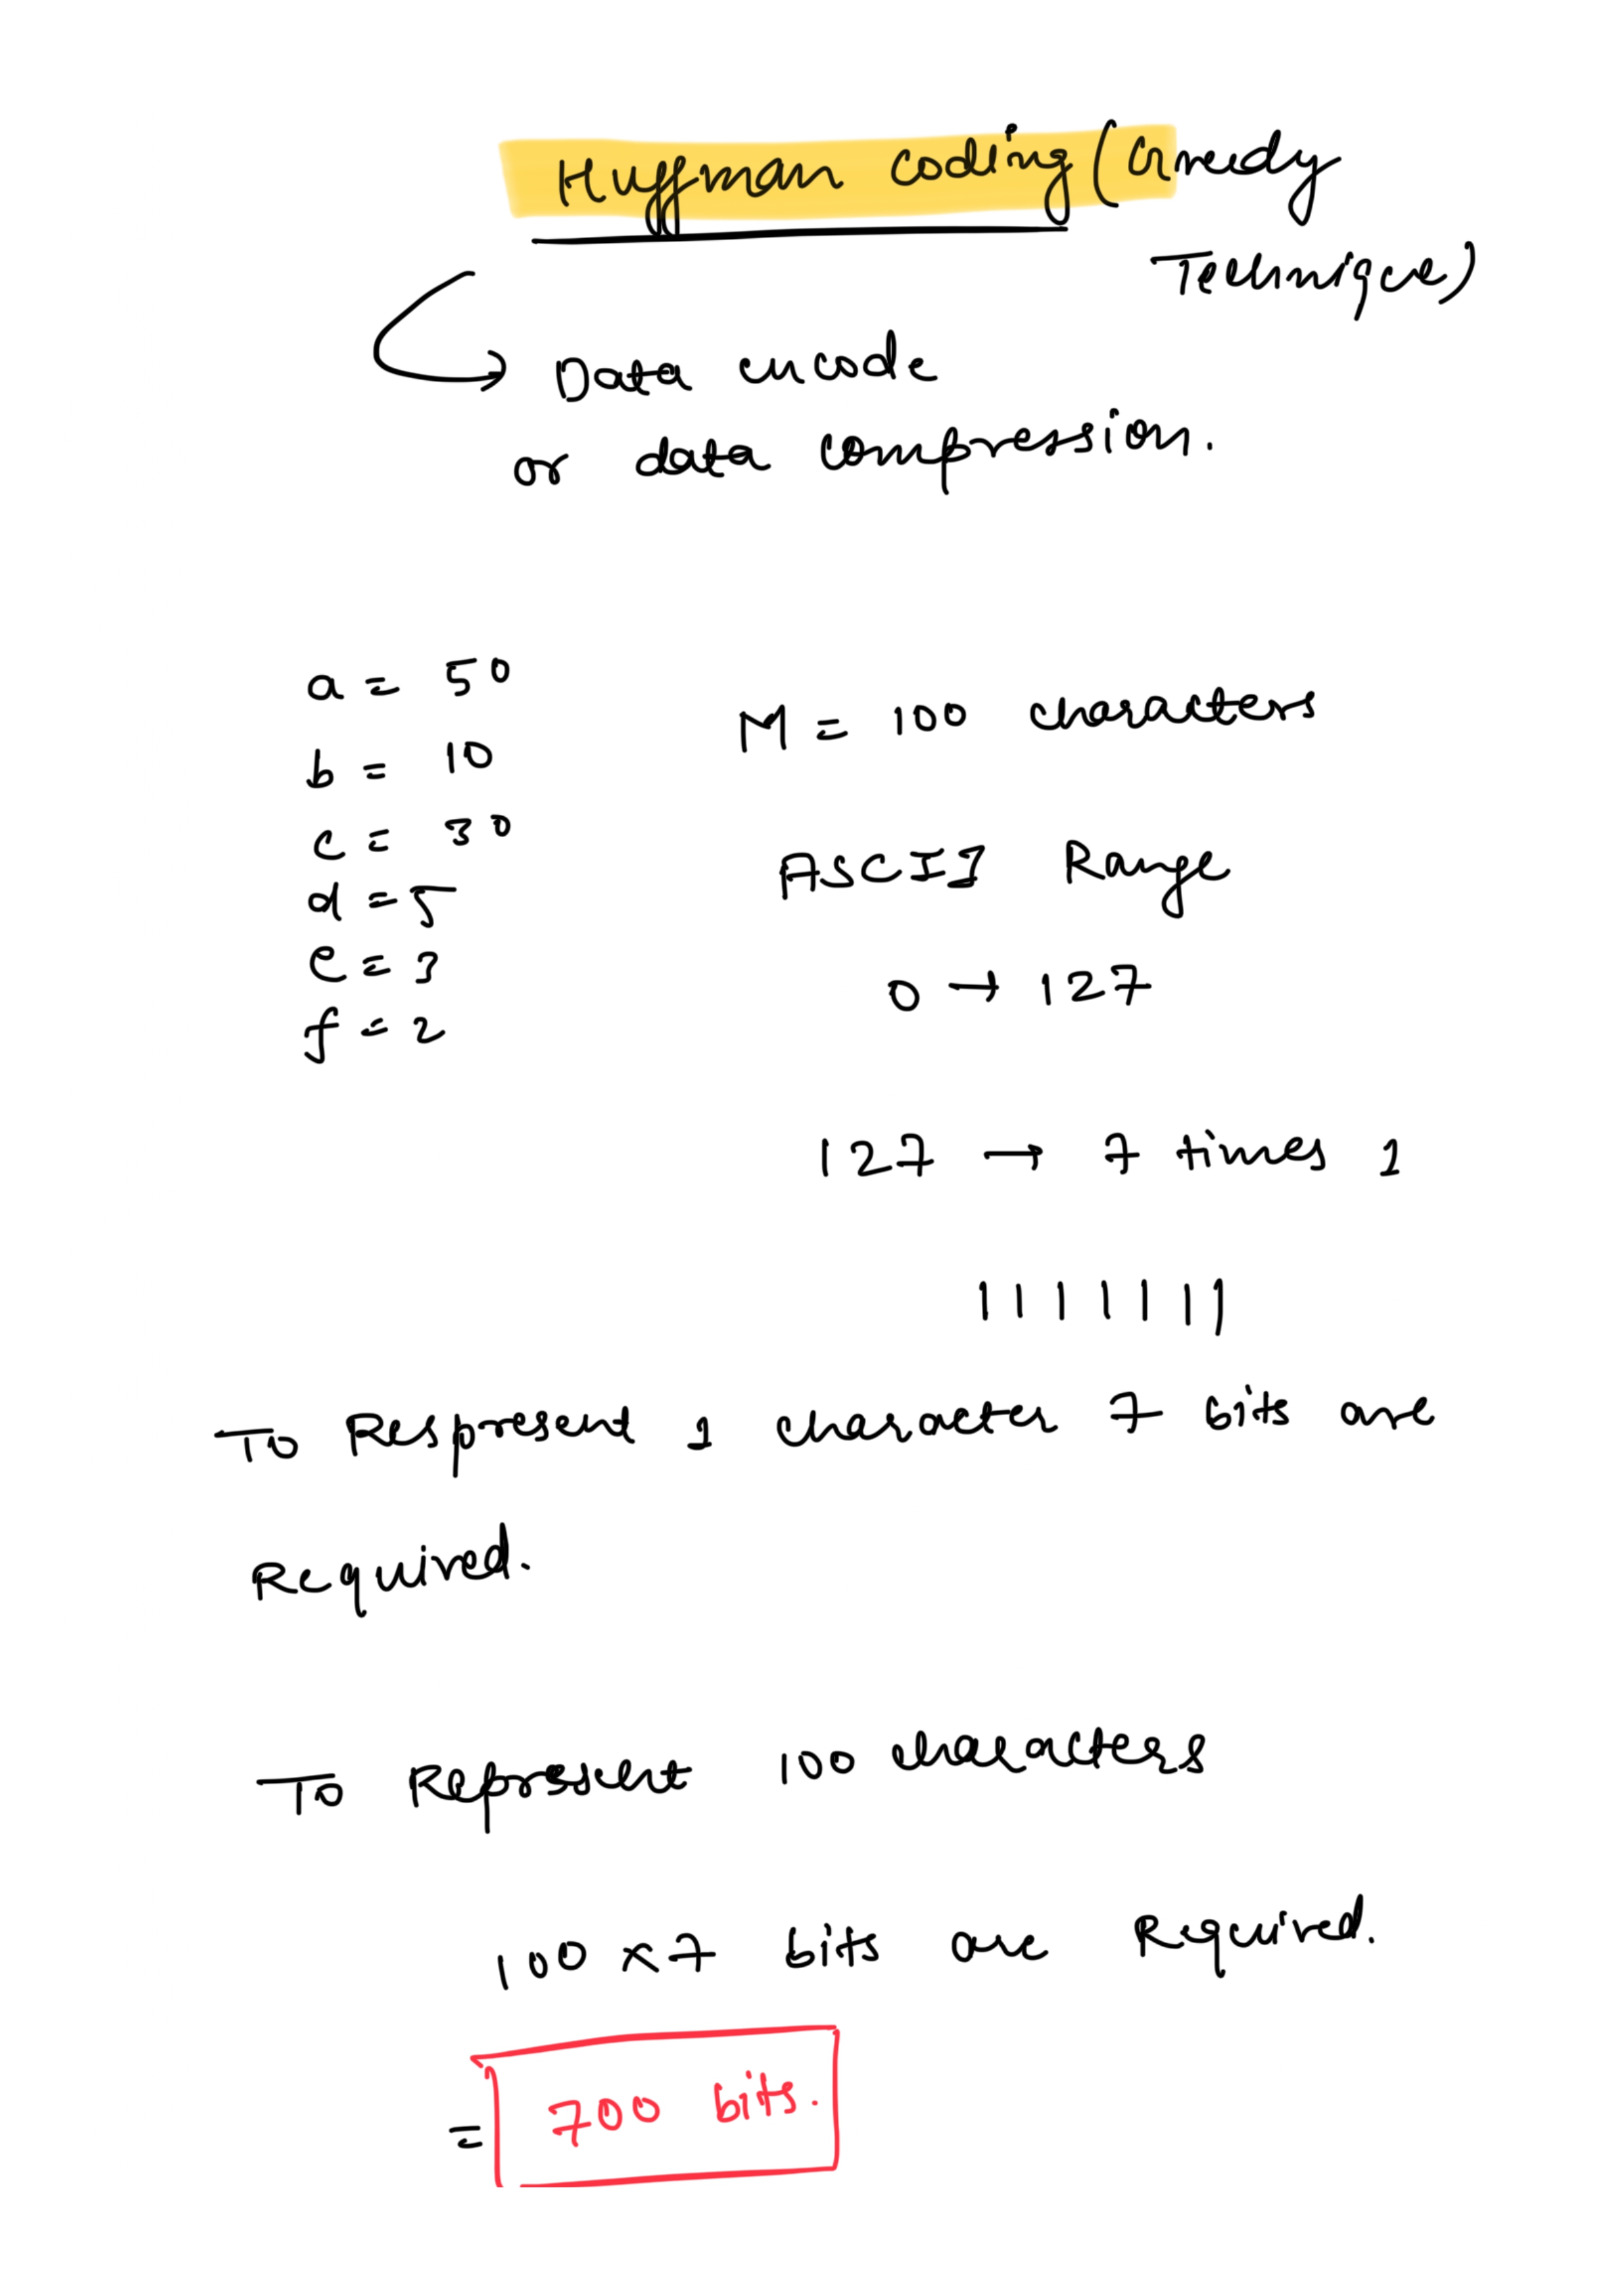 Huffman coding (Greedy
Technique)
→ Data encode
or data compression.
a = 50
b = 10
c = 30
d = 5
e = 3
f = 2
M = 100 characters
ASCII Range
0 → 127
127 → 7 times 1
1111111
To Respresent 1 character 7 bits are
Required.
To Represent 100 characters
100 x 7 bits are Required.
= 700 bits.